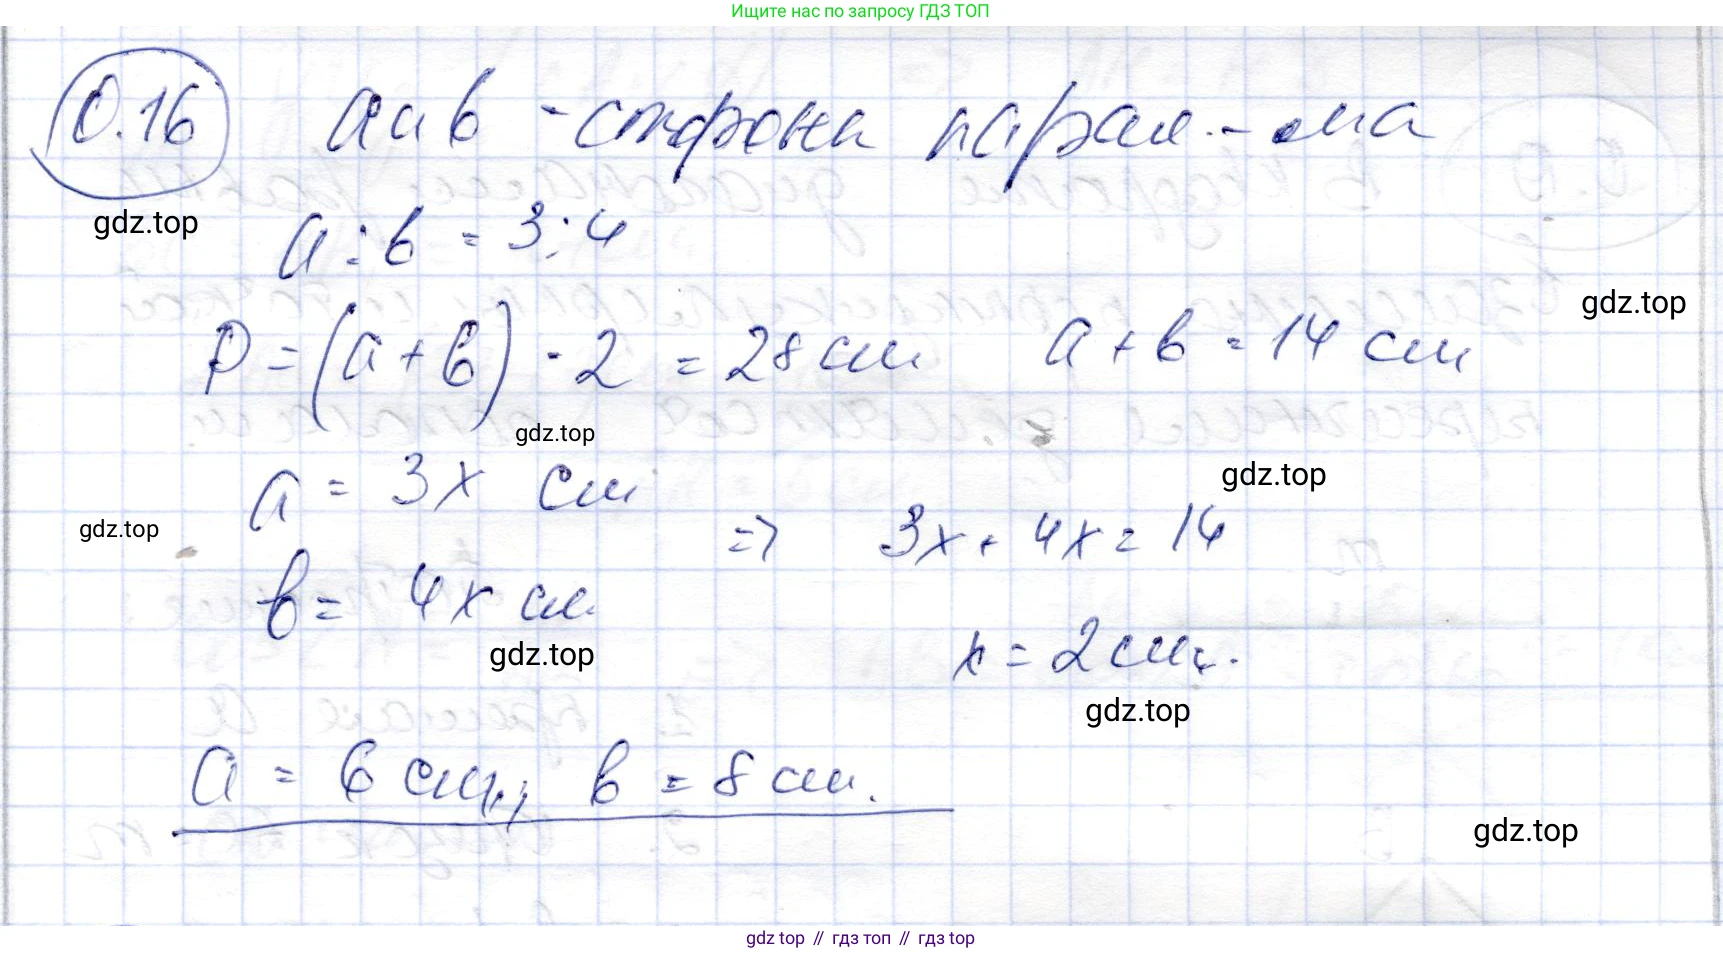 Ищите нас по запросу ГДЗ ТОП
0.16 а и в - стороны парал.-ма
gdz.top
а : в = 3 : 4
gdz.top
P = (а + в) · 2 = 28 см а + в = 14 см
gdz.top
gdz.top
а = 3x см
gdz.top
=> 3x + 4x = 14
в = 4x см
gdz.top
x = 2 см.
gdz.top
а = 6 см.; в = 8 см.
gdz.top
gdz top // гдз топ // гдз top